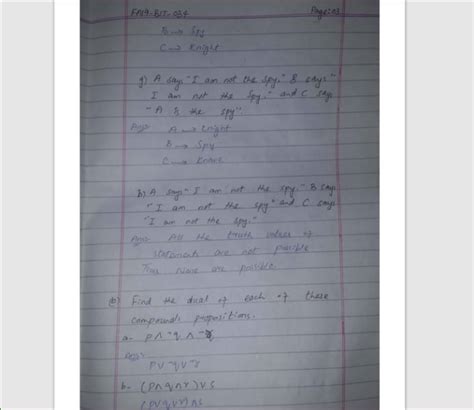 FA19-BIT-034 Page:03
B → Spy
C → Knight
g) A says "I am not the spy," B says "
I am not the spy," and C says
"A is the spy".
Ans: A → Knight
B → Spy
C → Knave
h) A says "I am not the spy." B says
"I am not the spy" and C says
"I am not the spy."
Ans: All the truth values of
statements are not possible
Thus None are possible
Find the dual of each of these
compounds propositions.
a- p∧¬q∧¬r
Ans:
p∨¬q∨¬r
b- (p∧q∧r)∨s
(p∨q∨r)∧s